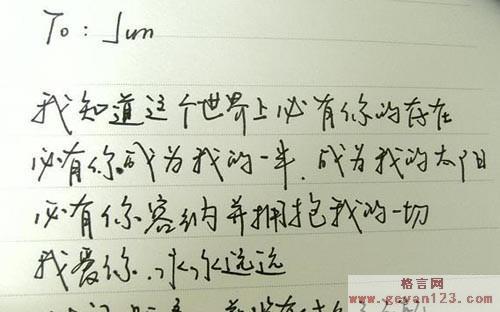 To: Jun
我知道这个世界上必有你的存在
必有你成为我的一半.成为我的太阳
必有你容纳并拥抱我的一切
我爱你.永永远远
格言网
www.geyan123.com